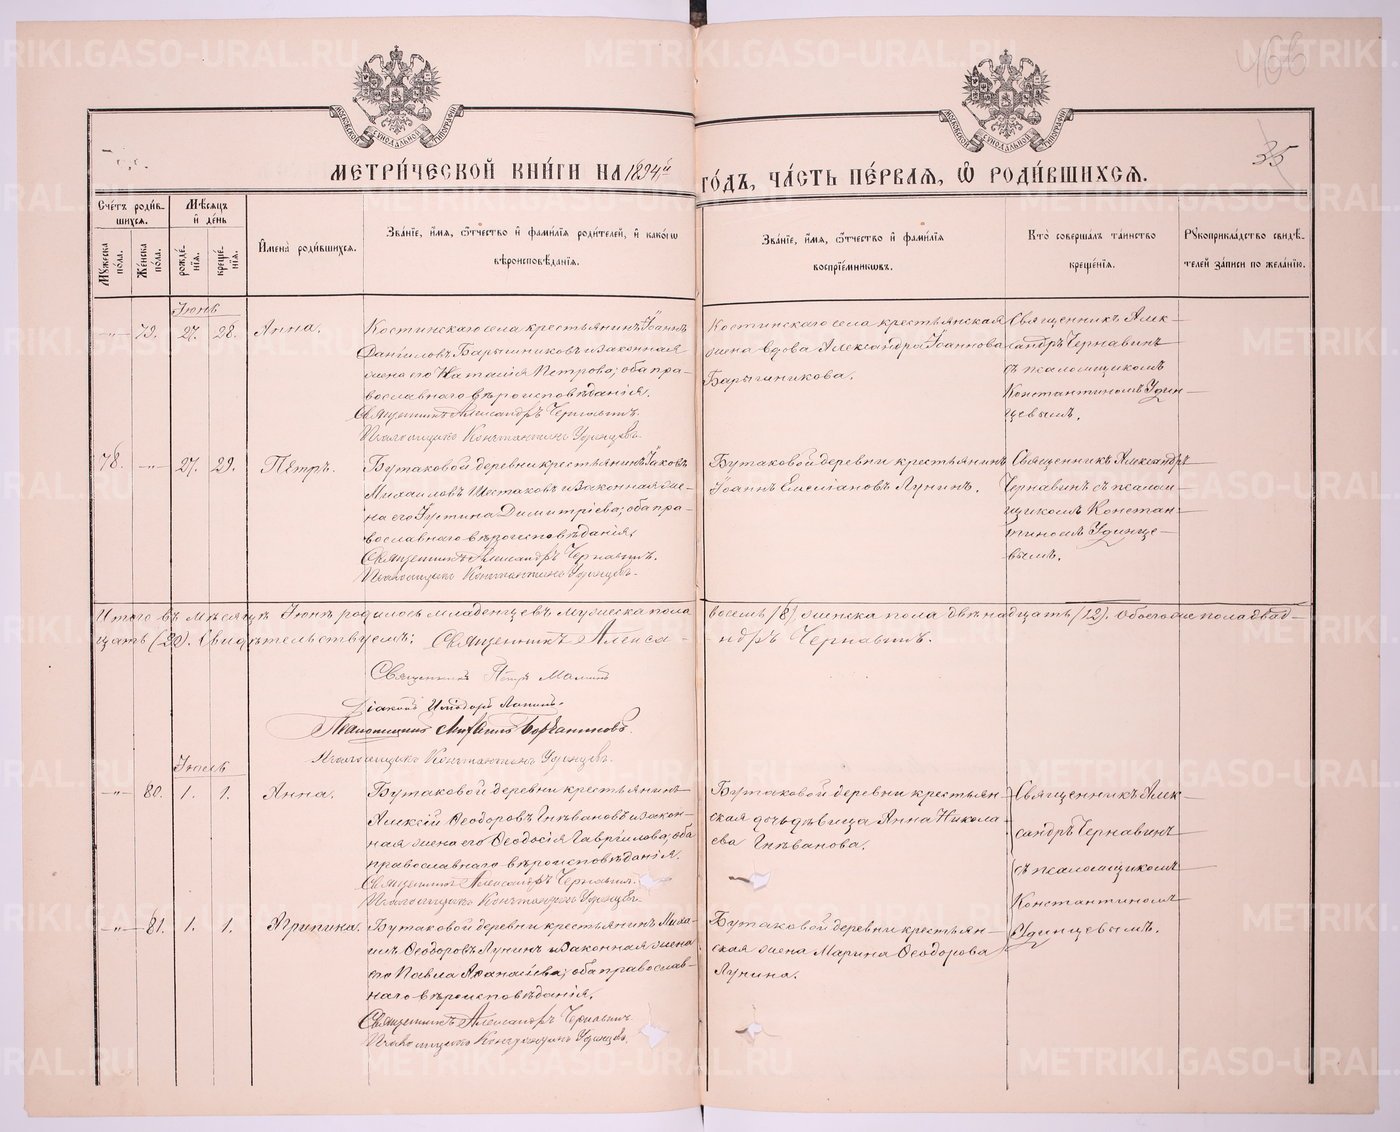 466
35
МОСКОВСКОЙ СѴНОДАЛЬНОЙ ТИПОГРАФІИ
МОСКОВСКОЙ СѴНОДАЛЬНОЙ ТИПОГРАФІИ
МЕТРИ́ЧЕСКОЙ КНИ́ГИ НА 1894й ГО́ДЪ, ЧА́СТЬ ПЕ́РВАЯ, Ѡ РОДИ́ВШИХСЯ.
Сче́тъ роди́в-
шихся.
Мꙋжеска
по́ла.
Же́нска
по́ла.
Мѣсяцъ
и де́нь
рожде́-
нія.
креще́-
нія.
Имена̀ роди́вшихся.
Зва́ніе, и́мя, ѻ́тчество и фами́лія роди́телей, и како́гѡ
вѣроисповѣ́данія.
Зва́ніе, и́мя, ѻ́тчество и фами́лія
воспріе́мникѡвъ.
Кто̀ соверша́лъ та́инство
креще́нія.
Рꙋкоприкла́дство свидѣ́-
телей за́писи по жела́нію.
Іюнь
-"- 79. 27. 28. Анна.
Костинскаго села крестьянинъ Іоаннъ
Даніиловъ Барышниковъ и законная
жена его Наталія Петрова; оба пра-
вославнаго вѣроисповѣданія.
Священникъ Александръ Чернавинъ.
Псаломщикъ Константинъ Удинцевъ.
Костинскаго села крестьянская
жена вдова Александра Іоаннова
Барышникова.
Священникъ Алек-
сандръ Чернавинъ
съ псаломщикомъ
Константиномъ Удин-
цевымъ.
78. -"- 27. 29. Пётръ.
Бутаковой деревни крестьянинъ Іаковъ
Михаиловъ Шестаковъ и законная же-
на его Іустина Димитріева; оба пра-
вославнаго вѣроисповѣданія.
Священникъ Александръ Чернавинъ.
Псаломщикъ Константинъ Удинцевъ.
Бутаковой деревни крестьянинъ
Іоаннъ Емеліановъ Лунинъ.
Священникъ Александръ
Чернавинъ съ псалом-
щикомъ Констан-
тиномъ Удинце-
вымъ.
Итого въ мѣсяцѣ Іюнѣ родилось младенцевъ мужеска пола восемь (8), женска пола двѣнадцать (12). Обоего же пола двад-
цать (20). Свидѣтельствуемъ: Священникъ Алекса-ндръ Чернавинъ.
Священникъ Петръ Маминъ
Діаконъ Исидоръ
Псаломщикъ
Псаломщикъ Константинъ Удинцевъ.
Іюль
-"- 80. 1. 1. Анна.
Бутаковой деревни крестьянинъ
Алексій Ѳеодоровъ Гнѣвановъ и закон-
ная жена его Ѳеодосія Гавріилова; оба
православнаго вѣроисповѣданія.
Священникъ Александръ Чернавинъ.
Псаломщикъ Константинъ Удинцевъ.
Бутаковой деревни крестьян-
ская дочь дѣвица Анна Никола-
ева Гнѣванова.
Священникъ Алек-
сандръ Чернавинъ
съ псаломщикомъ
Константиномъ
Удинцевымъ.
-"- 81. 1. 1. Агрипина.
Бутаковой деревни крестьянинъ Миха-
илъ Ѳеодоровъ Лунинъ и законная жена
его Павла Аѳанасіева; оба православ-
наго вѣроисповѣданія.
Священникъ Александръ Чернавинъ.
Псаломщикъ Константинъ Удинцевъ.
Бутаковой деревни крестьян-
ская жена Марина Ѳеодорова
Лунина.
METRIKI.GASO-URAL.RU